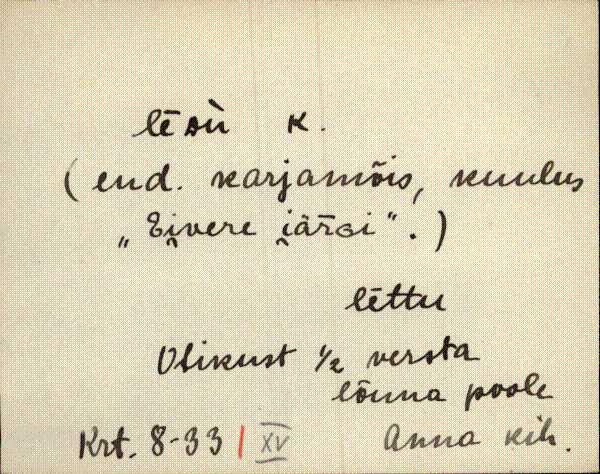 lēsù k.
(end. karjamõis, kuulus
„Ei̯vere i̯ärGi“.)
lēttu
Olikust ½ versta
lõuna poole
Krt. 8-33 | XV Anna kih.